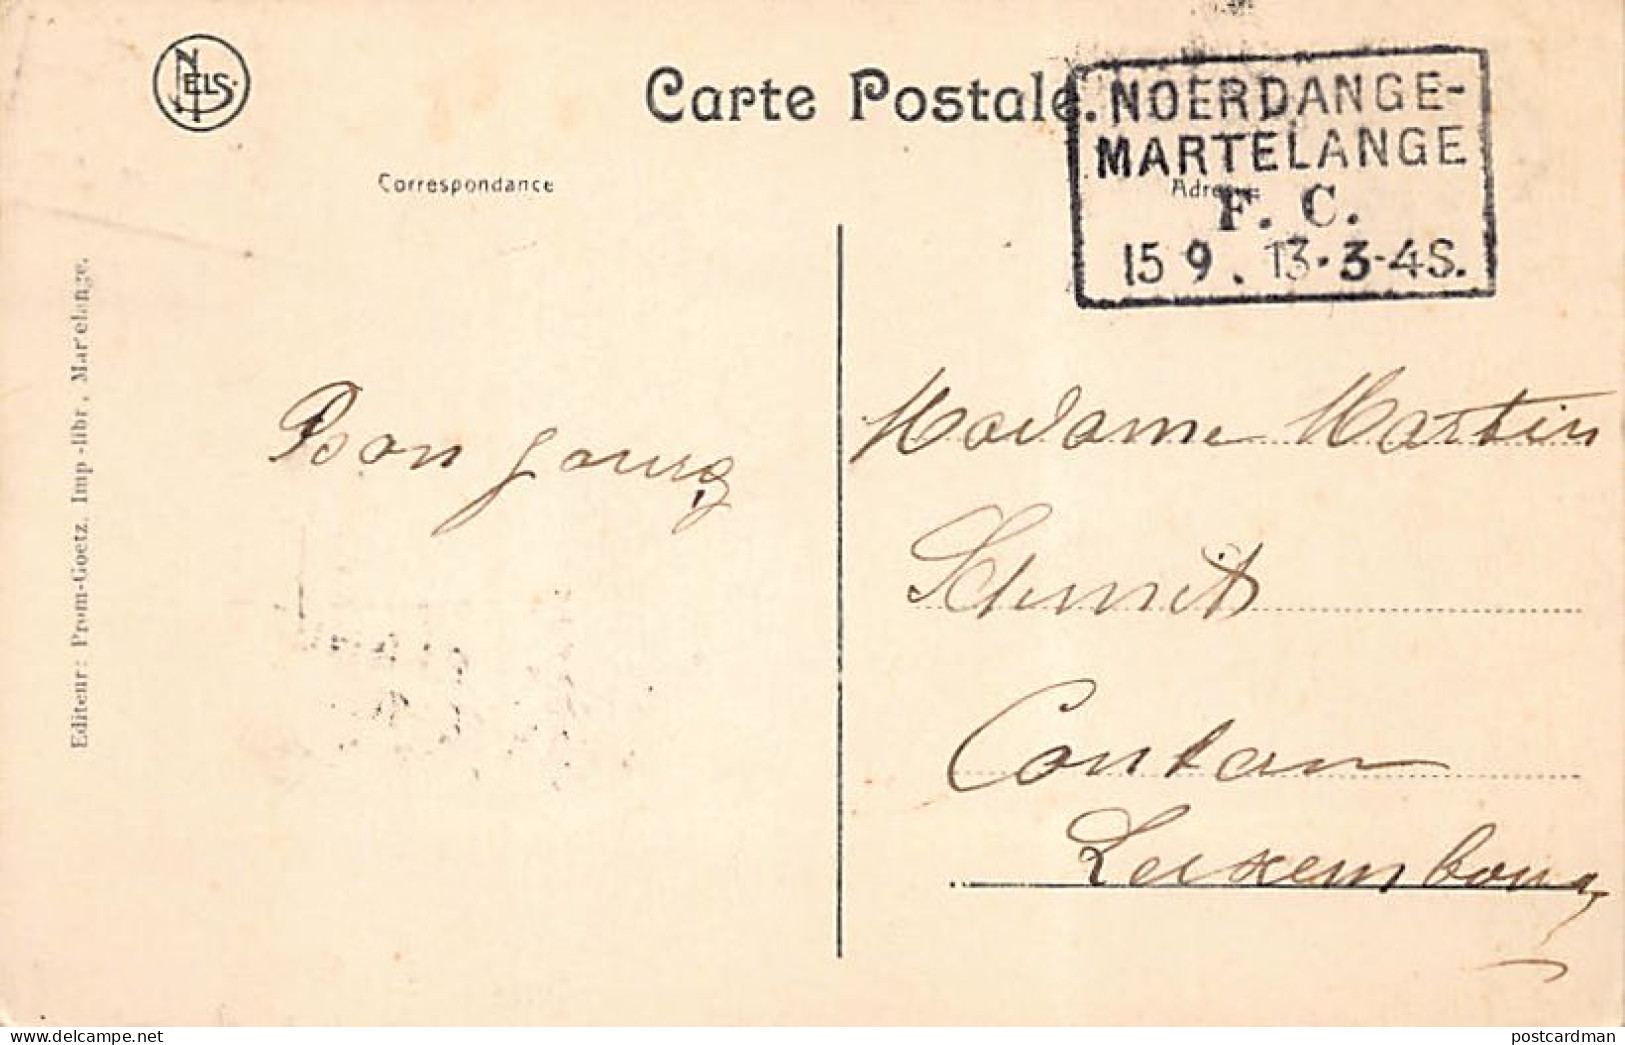 NELS.
Carte Postale.
NOERDANGE-
MARTELANGE
F. C.
15 9 . 13 · 3-4S.
Correspondance
Adresse
Editeur: Prom-Goetz, Imp-libr, Martelange.
Bonjour
Madame Martin
Schmit
Contern
Luxembourg
delcampe.net
postcardman